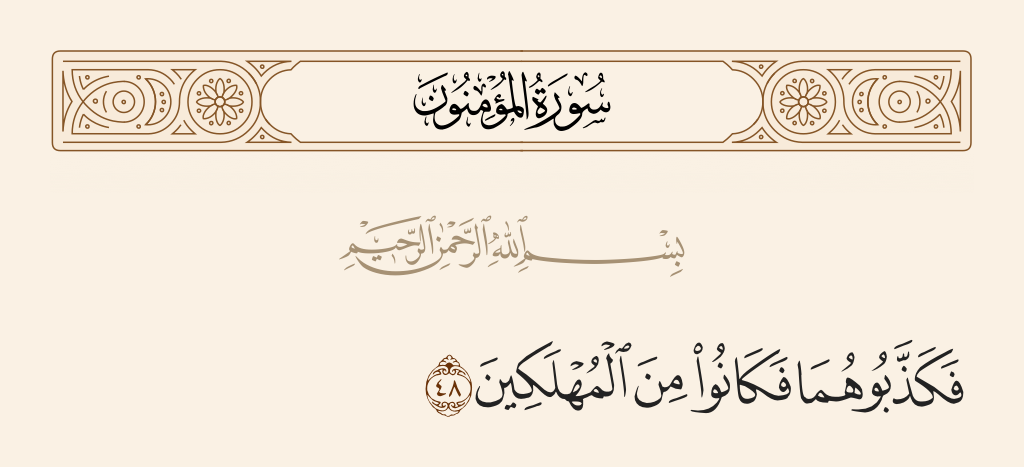 سُورَةُ المُؤْمِنُونَ
بِسْمِ ٱللَّهِ ٱلرَّحْمَٰنِ ٱلرَّحِيمِ
فَكَذَّبُوهُمَا فَكَانُوا۟ مِنَ ٱلْمُهْلَكِينَ ٤٨